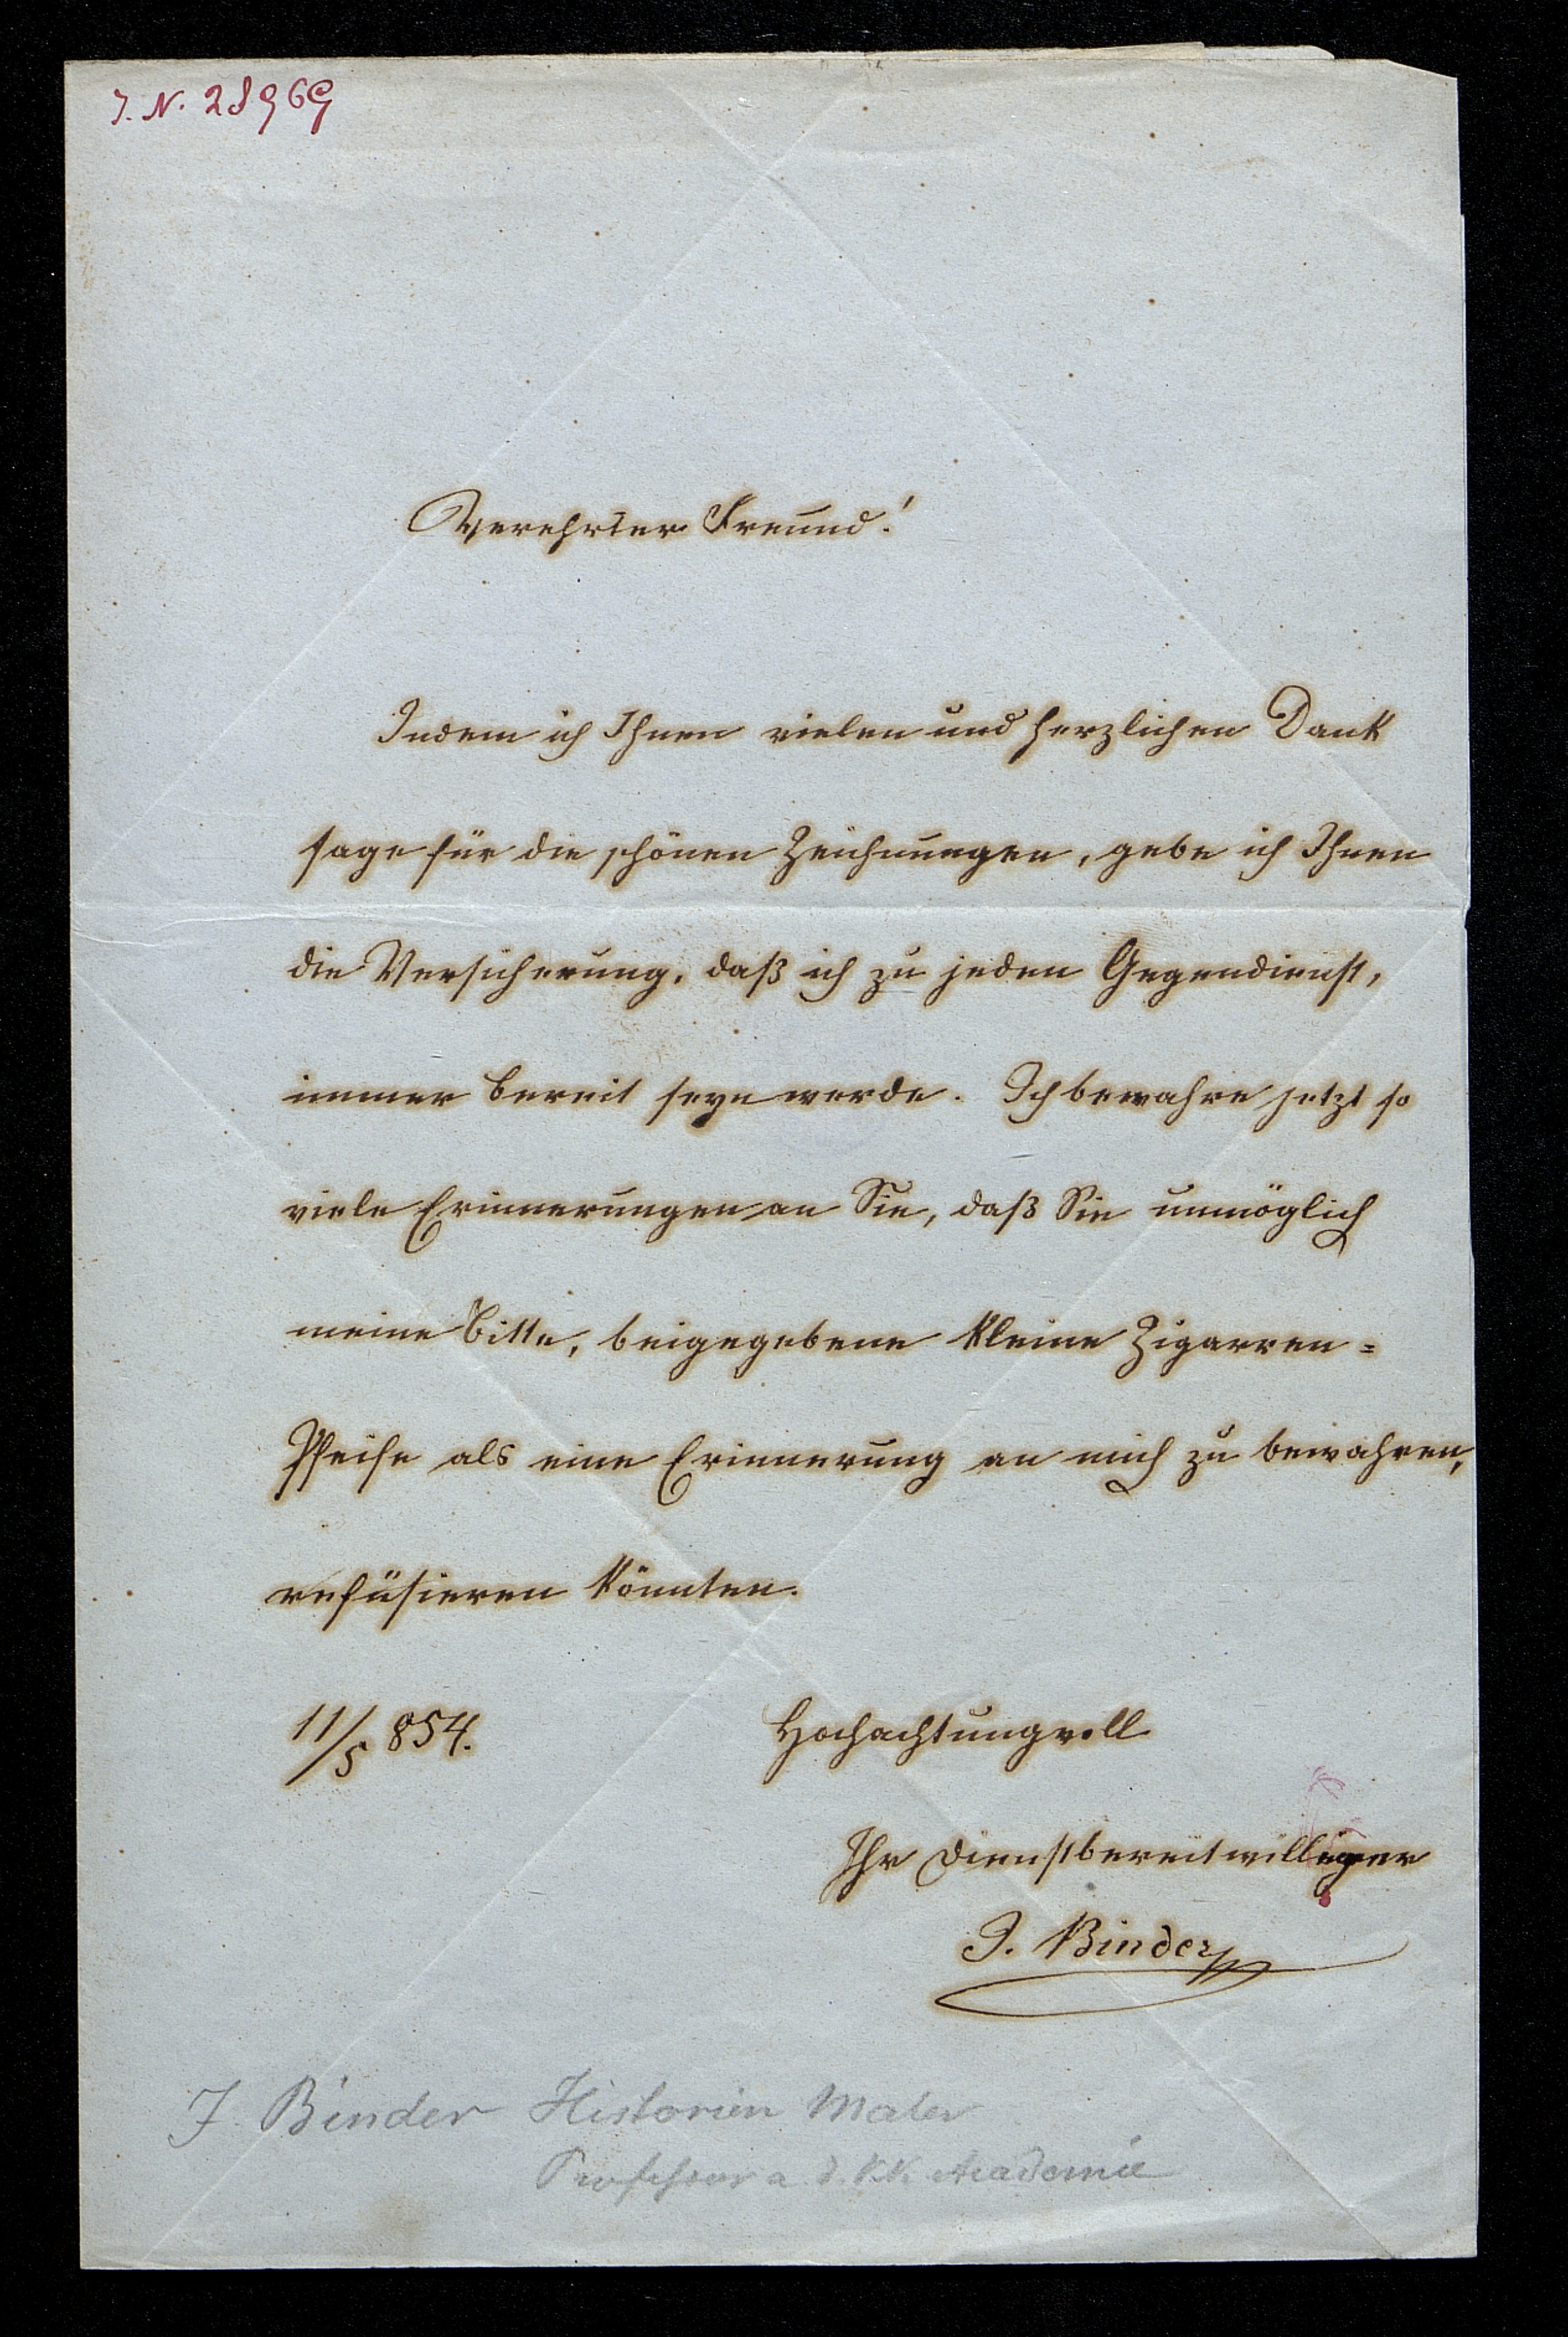 J. N. 28969
Verehrter Freund!
Indem ich Ihnen vielen und herzlichen Dank
sage für die schönen Zeichnungen, gebe ich Ihnen
die Versicherung, daß ich zu jeden Gegendienst,
immer bereit seyn werde. Ich bewahre jetzt so
viele Erinnerungen an Sie, daß Sie unmöglich
meine Bitte, beigegebene kleine Zigarren=
Pfeife als eine Erinnerung an mich zu bewahren,
refüsieren könnten.
11/5 854. Hochachtungvoll
Ihr dienstbereitwilliger
J. Binder
J. Binder Historien Maler
Professor a. d. K.K. Academie